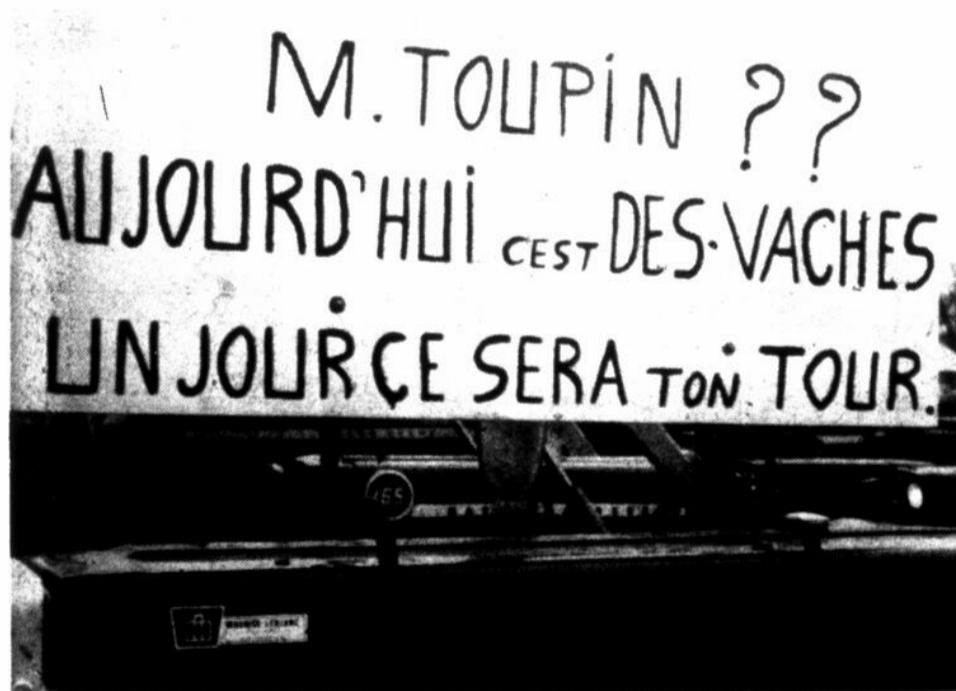 M. TOUPIN ??
AUJOURD'HUI CEST DES VACHES
UN JOUR ÇE SERA TON TOUR.